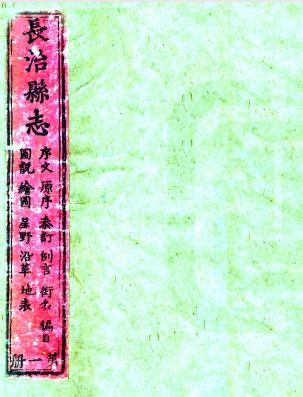 長治縣志
序文 原序 叅訂 例言 銜名 編目
圖說 繪圖 星野 沿革 地表
第一册